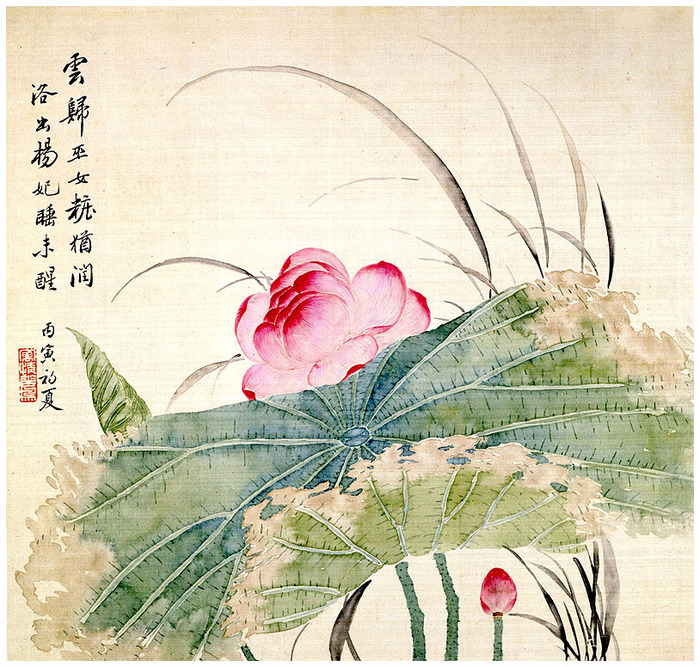 雲歸巫女粧猶潤
洛出楊妃睡未醒
丙寅初夏